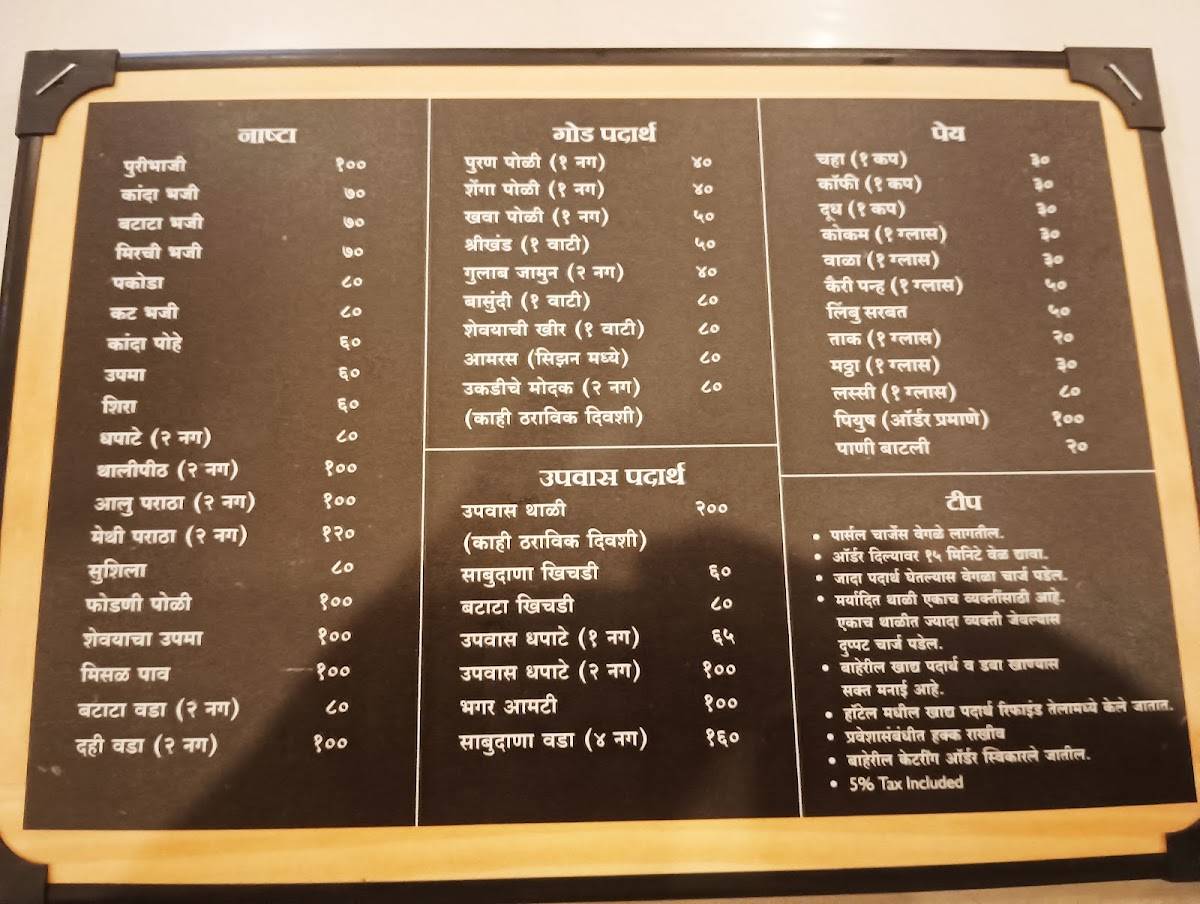 नाष्टा
पुरीभाजी १००
कांदा भजी ७०
बटाटा भजी ७०
मिरची भजी ७०
पकोडा ८०
कट भजी ८०
कांदा पोहे ६०
उपमा ६०
शिरा ६०
धपाटे (२ नग) ८०
थालीपीठ (२ नग) १००
आलु पराठा (२ नग) १००
मेथी पराठा (२ नग) १२०
सुशिला ८०
फोडणी पोळी १००
शेवयाचा उपमा १००
मिसळ पाव १००
बटाटा वडा (२ नग) ८०
दही वडा (२ नग) १००
गोड पदार्थ
पुरण पोळी (१ नग) ४०
शेंगा पोळी (१ नग) ४०
खवा पोळी (१ नग) ५०
श्रीखंड (१ वाटी) ५०
गुलाब जामुन (२ नग) ४०
बासुंदी (१ वाटी) ८०
शेवयाची खीर (१ वाटी) ८०
आमरस (सिझन मध्ये) ८०
उकडीचे मोदक (२ नग) ८०
(काही ठराविक दिवशी)
उपवास पदार्थ
उपवास थाळी २००
(काही ठराविक दिवशी)
साबुदाणा खिचडी ६०
बटाटा खिचडी ८०
उपवास धपाटे (१ नग) ६५
उपवास धपाटे (२ नग) १००
भगर आमटी १००
साबुदाणा वडा (४ नग) १६०
पेय
चहा (१ कप) ३०
कॉफी (१ कप) ३०
दूध (१ कप) ३०
कोकम (१ ग्लास) ३०
वाळा (१ ग्लास) ३०
कैरी पन्ह (१ ग्लास) ५०
लिंबु सरबत ५०
ताक (१ ग्लास) २०
मठ्ठा (१ ग्लास) ३०
लस्सी (१ ग्लास) ८०
पियुष (ऑर्डर प्रमाणे) १००
पाणी बाटली २०
टीप
• पार्सल चार्जेस वेगळे लागतील.
• ऑर्डर दिल्यावर १५ मिनिटे वेळ द्यावा.
• जादा पदार्थ घेतल्यास वेगळा चार्ज पडेल.
• मर्यादित थाळी एकाच व्यक्तींसाठी आहे.
एकाच थाळीत ज्यादा व्यक्ती जेवल्यास
दुप्पट चार्ज पडेल.
• बाहेरील खाद्य पदार्थ व डबा खाण्यास
सक्त मनाई आहे.
• हॉटेल मधील खाद्य पदार्थ रिफाइंड तेलामध्ये केले जातात.
• प्रवेशासंबंधीत हक्क राखीव
• बाहेरील केटरींग ऑर्डर स्विकारले जातील.
• 5% Tax Included